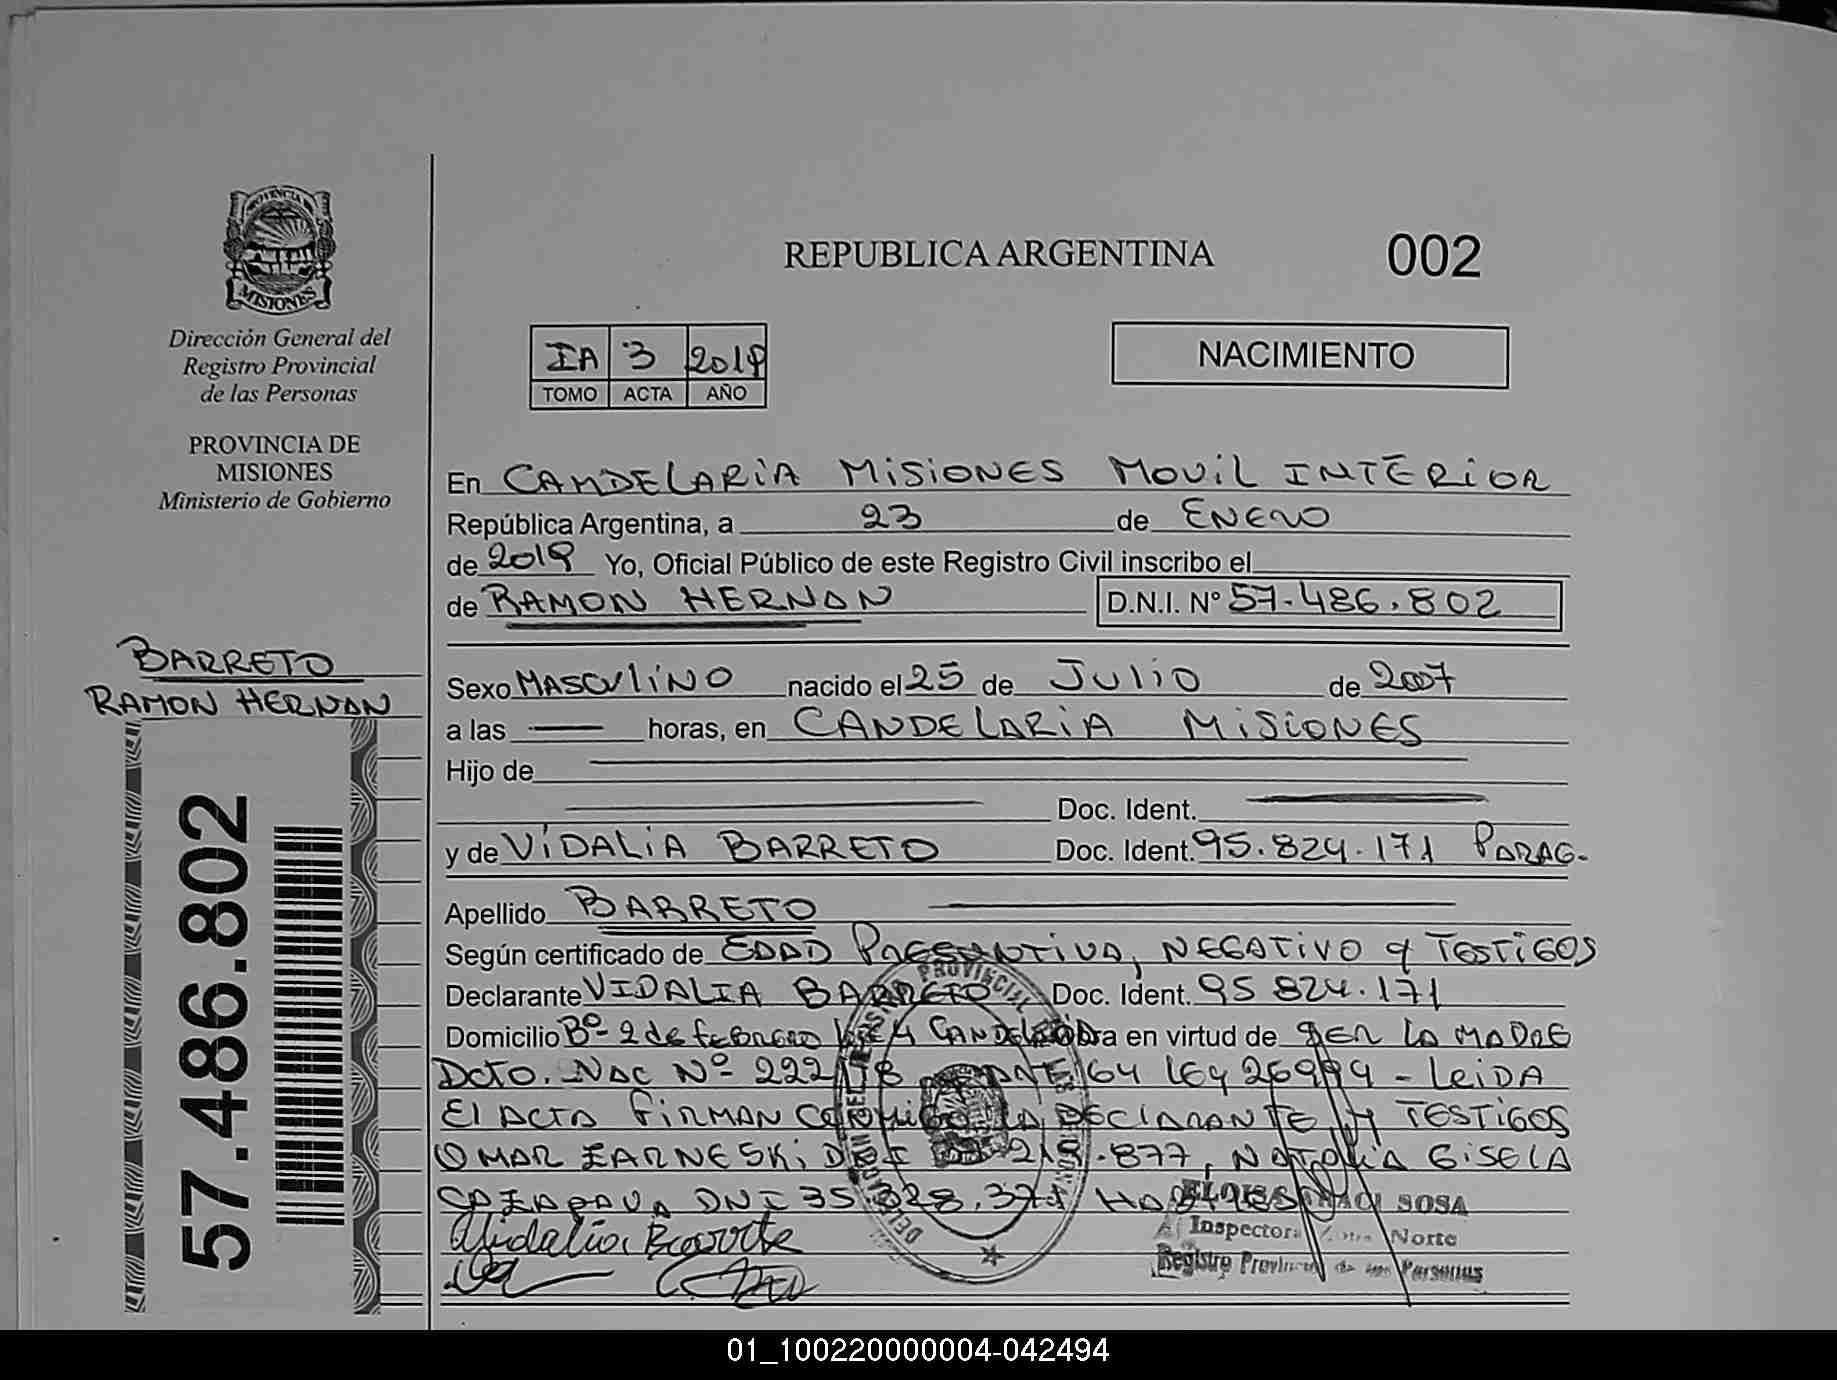 PROVINCIA DE
MISIONES
Dirección General del
Registro Provincial
de las Personas
PROVINCIA DE
MISIONES
Ministerio de Gobierno
BARRETO
RAMON HERNAN
57.486.802
REPUBLICA ARGENTINA 002
IA 3 2019
TOMO ACTA AÑO
NACIMIENTO
En CANDELARIA MISIONES MOVIL INTERIOR
República Argentina, a 23 de ENERO
de 2019 Yo, Oficial Público de este Registro Civil inscribo el
de RAMON HERNAN D.N.I. Nº 57.486.802
Sexo MASCULINO nacido el 25 de JULIO de 2007
a las — horas, en CANDELARIA MISIONES
Hijo de
Doc. Ident.
y de VIDALIA BARRETO Doc. Ident. 95.824.171 PARAG-
Apellido BARRETO
Según certificado de EDAD PRESUNTIVA, NEGATIVO y TESTIGOS
Declarante VIDALIA BARRETO Doc. Ident. 95 824.171
Domicilio Bº- 2 de febrero CANDELARIA Obra en virtud de SER LA MADRE
Dcto. NAC Nº- 222 - LEIDA
El ACTA FIRMAN CONMIGO LA DECLARANTE Y TESTIGOS
OMAR ZARNESKI .877, NATALIA GISELA
DNI 35
Vidalia Barreto
SOSA
Inspectora Zona Norte
Registro Provincial de las Personas
PROVINCIAL
01_100220000004-042494